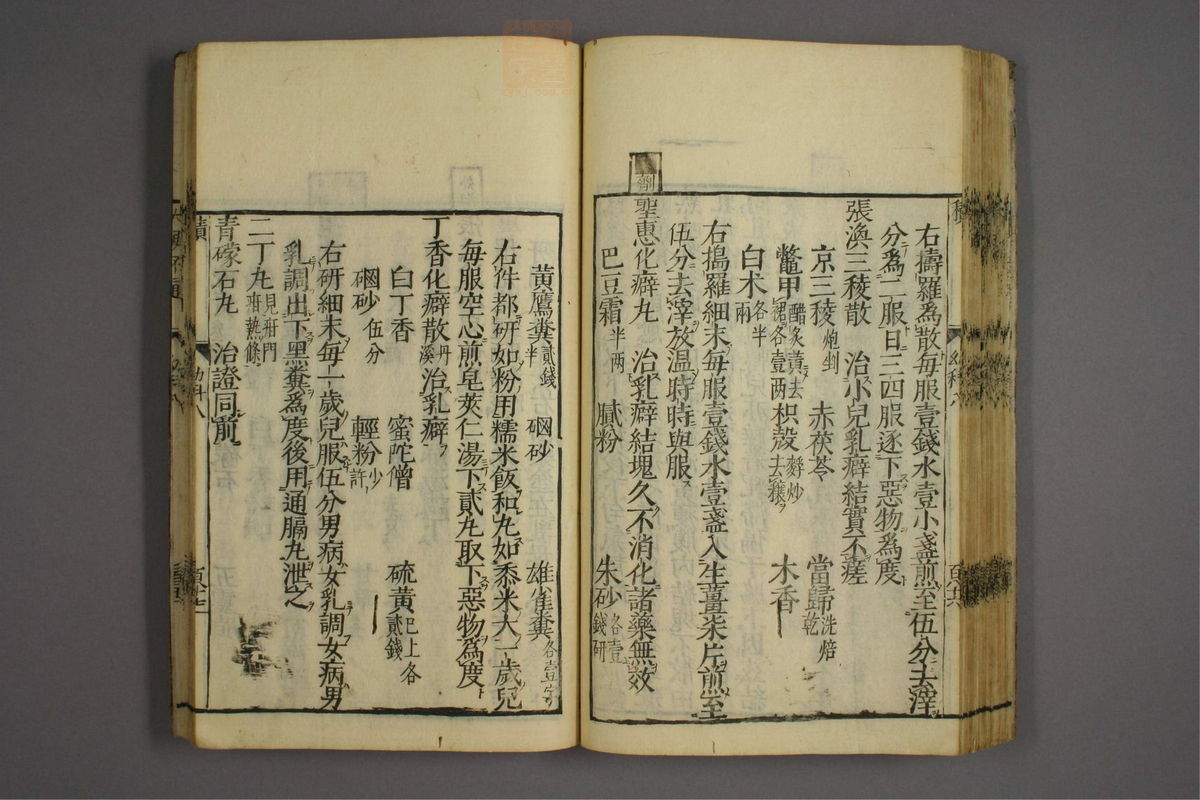 右擣羅爲散每服壹錢水壹小盞煎至伍分去滓
分爲二服日三四服逐下惡物爲度
張渙三稜散　治小兒乳癖結實不瘥
京三稜炮剉　赤茯苓　當歸洗焙乾
鼈甲醋炙黃去裙各壹两　枳殼麩炒去穰　木香
白术各半兩
右搗羅細末每服壹錢水壹盞入生薑柒片煎至
伍分去滓放温時時與服
劑
聖惠化癖丸　治乳癖結塊久不消化諸藥無效
巴豆霜半两　膩粉　朱砂各壹錢研
黃鷹糞貳錢半　硇砂　雄雀糞各壹字
右件都研如粉用糯米飯和丸如黍米大一歲兒
每服空心煎皂莢仁湯下貳丸取下惡物為度
丁香化癖散丹溪　治乳癖
白丁香　蜜陀僧　硫黃已上各貳錢
硇砂伍分　輕粉少許
右研細末每一歲兒服伍分男病女乳調女病男
乳調出下黑糞為度後用通膈丸泄之
二丁丸見班門䐜熱條
青礞石丸　治證同前